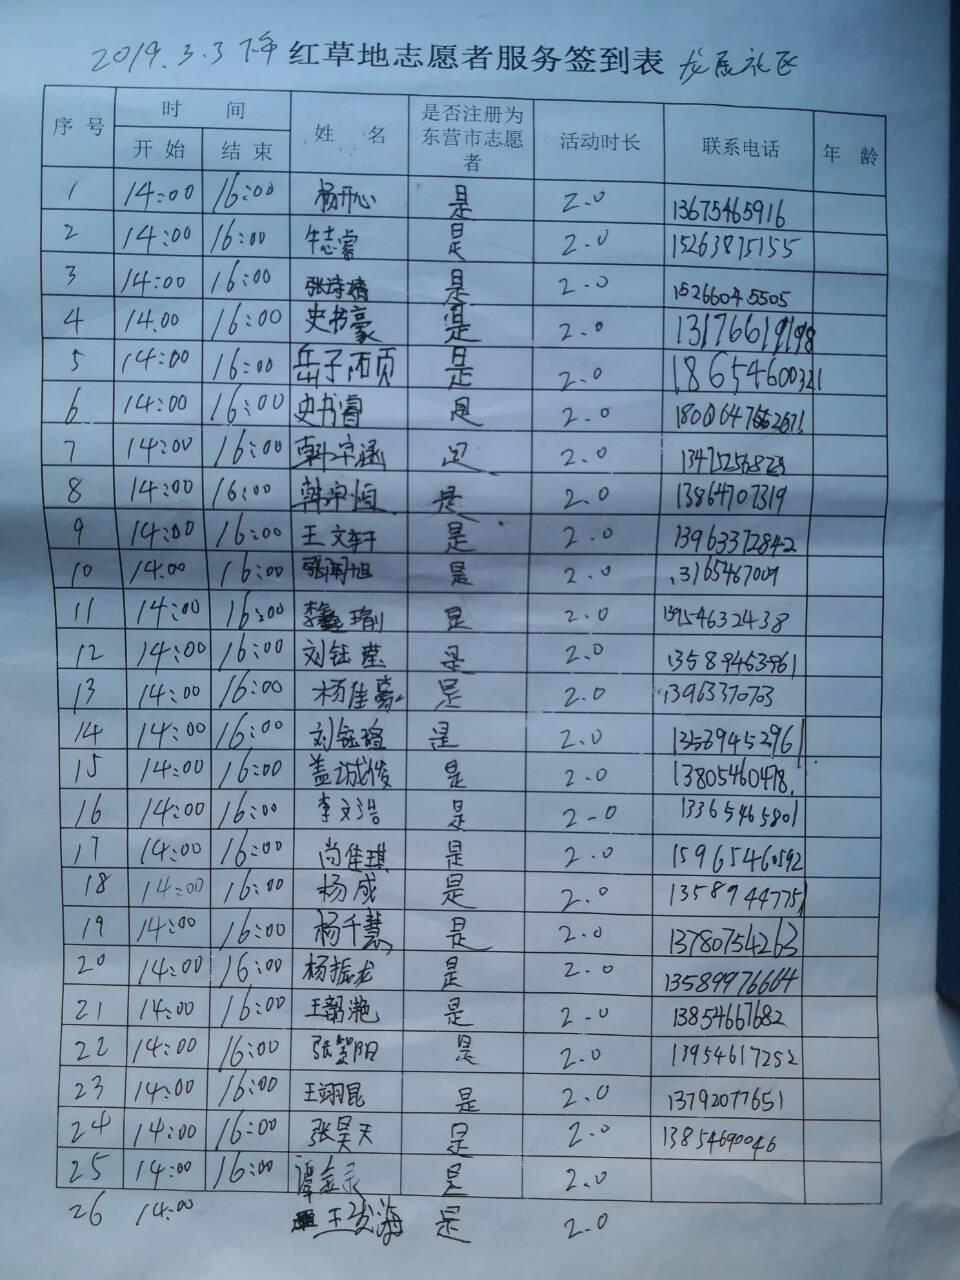 2019.3.3下午 红草地志愿者服务签到表 龙居社区
序号 时间 姓名 是否注册为东营市志愿者 活动时长 联系电话 年龄
开始 结束
1 14:00 16:00 杨开心 是 2.0 13675465916
2 14:00 16:00 牛志睿 是 2.0 15263875155
3 14:00 16:00 张诗婧 是 2.0 15266045505
4 14.00 16:00 史书豪 是 2.0 13176619198
5 14:00 16:00 岳子 是 2.0 18654600321
6 14:00 16:00 史书睿 是 2.0
7 14:00 16:00 韩宇涵 是 2.0 13475256823
8 14:00 16:00 韩宇恒 是 2.0 13864707319
9 14:00 16:00 王文轩 是 2.0 13963372842
10 14.00 16:00 张闻旭 是 2.0 13165467009
11 14:00 16:00 李 是 2.0 13954632438
12 14:00 16:00 刘钰莹 是 2.0 13589453961
13 14:00 16:00 杨佳豪 是 2.0 13963370703
14 14:00 16:00 刘钰瑄 是 2.0 13589452961
15 14:00 16:00 盖诚俊 是 2.0 13805460478
16 14:00 16:00 李文浩 是 2.0 13365465801
17 14:00 16:00 尚佳琪 是 2.0 15965460592
18 14:00 16:00 杨成 是 2.0 13589447751
19 14:00 16:00 杨千慧 是 2.0 13780754263
20 14:00 16:00 杨振龙 是 2.0 13589976664
21 14:00 16:00 王韶滟 是 2.0 13854667682
22 14:00 16:00 张贺阳 是 2.0 13954617252
23 14:00 16:00 王翊昆 是 2.0 13792077651
24 14:00 16:00 张昊天 是 2.0 13854690046
25 14:00 16:00 谭金录 是 2.0
26 14:00 王浚海 是 2.0